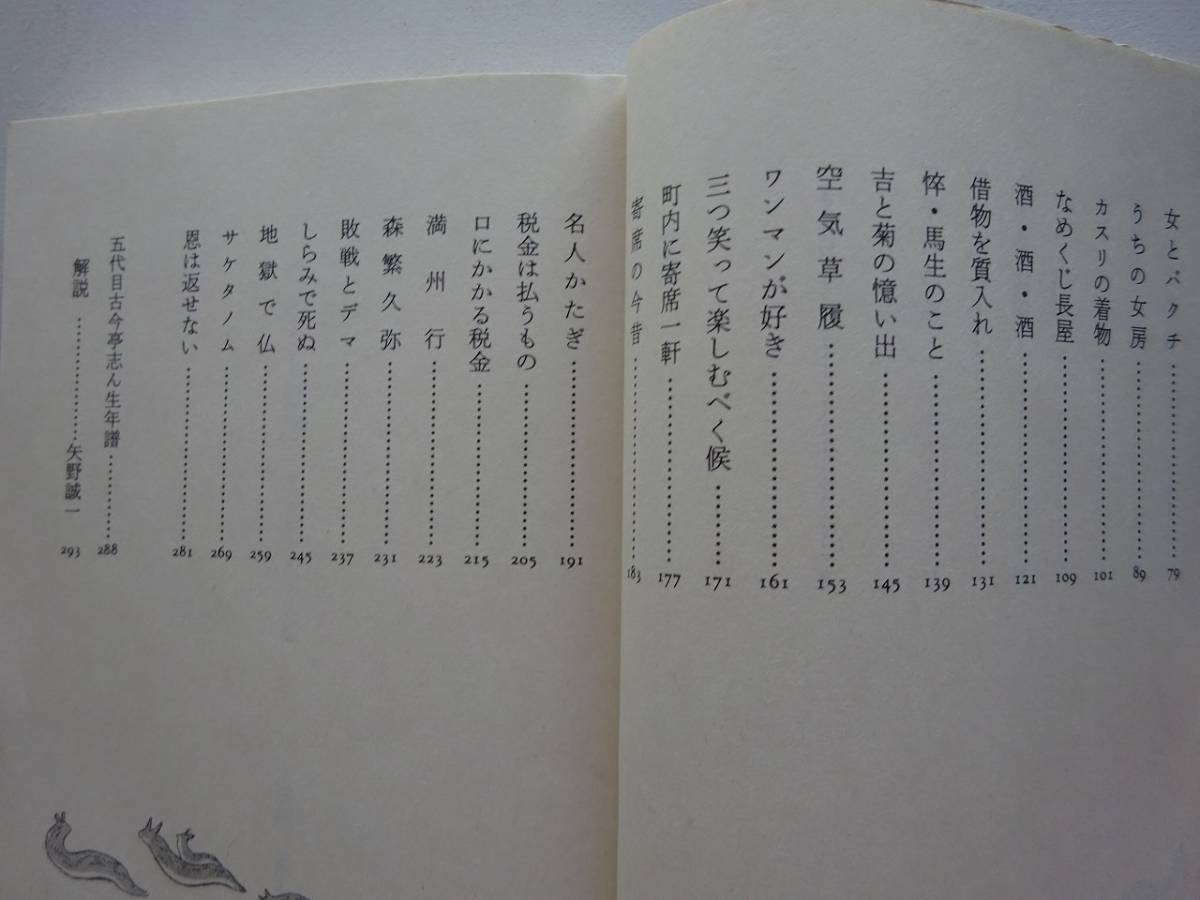 女とバクチ…………79
うちの女房…………89
カスリの着物…………101
なめくじ長屋…………109
酒・酒・酒…………121
借物を質入れ…………131
悴・馬生のこと…………139
吉と菊の憶い出…………145
空気草履…………153
ワンマンが好き…………161
三つ笑って楽しむべく候…………171
町内に寄席一軒…………177
寄席の今昔…………183
名人かたぎ…………191
税金は払うもの…………205
口にかかる税金…………215
満州行…………223
森繁久弥…………231
敗戦とデマ…………237
しらみで死ぬ…………245
地獄で仏…………259
サケタノム…………269
恩は返せない…………281
五代目古今亭志ん生年譜…………288
解説…………矢野誠一 293